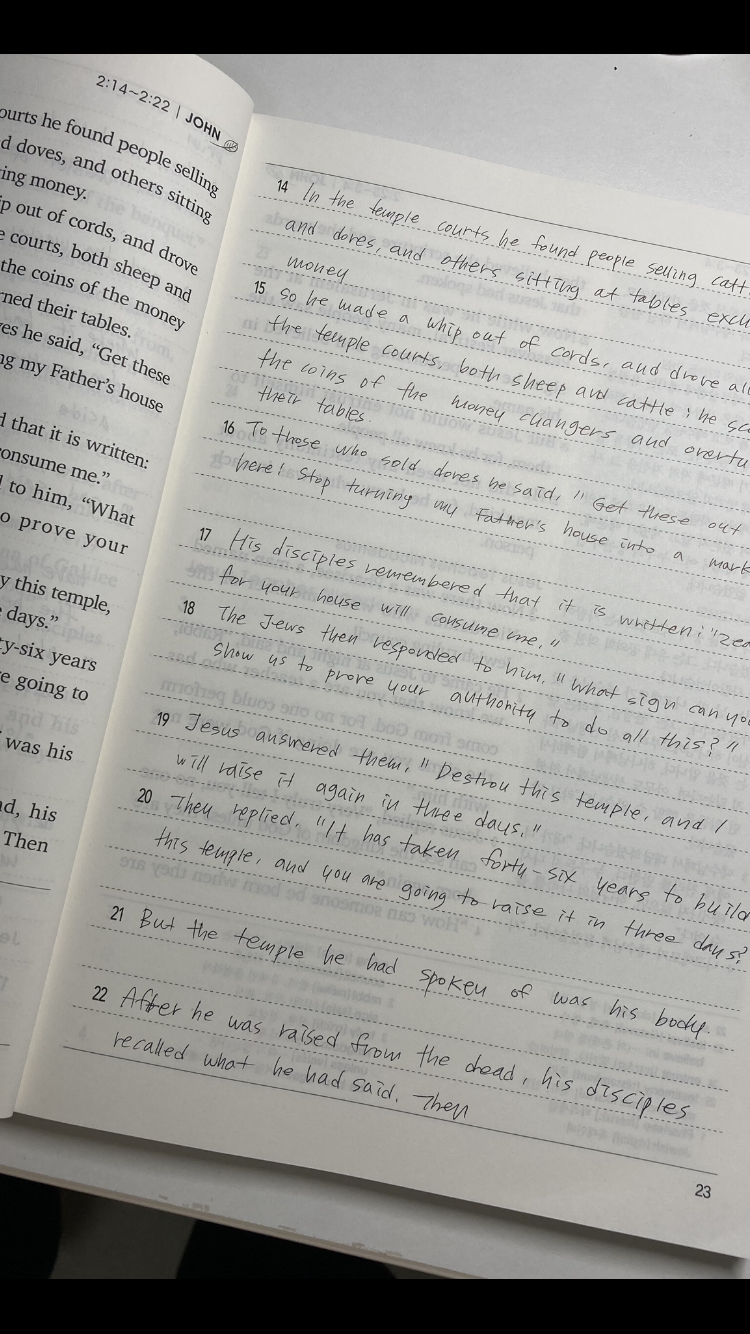 2:14~2:22 | JOHN
ourts he found people selling
d doves, and others sitting
ing money.
ip out of cords, and drove
e courts, both sheep and
the coins of the money
rned their tables.
es he said, “Get these
ng my Father’s house
d that it is written:
onsume me.”
l to him, “What
o prove your
y this temple,
e days.”
ty-six years
e going to
was his
ad, his
Then
14 In the temple courts he found people selling catt
and doves, and others sitting at tables exch
money
15 So he made a whip out of cords, and drove all
the temple courts, both sheep and cattle ; he sca
the coins of the money changers and overtu
their tables
16 To those who sold doves he said, "Get these out
here! Stop turning my Father's house into a mark
17 His disciples remembered that it is written : "zea
for your house will consume me."
18 The Jews then responded to him. "What sign can you
show us to prove your authority to do all this?"
19 Jesus answered them. "Destroy this temple, and I
will raise it again in three days."
20 They replied. "It has taken forty-six years to build
this temple, and you are going to raise it in three days?
21 But the temple he had spoken of was his body.
22 After he was raised from the dead, his disciples
recalled what he had said. Then
23